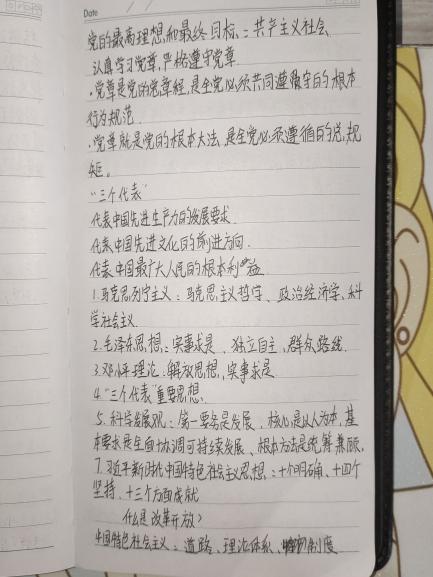 Date / /
党的最高理想和最终目标:共产主义社会
认真学习党章,严格遵守党章
·党章是党的党章程,是全党必须共同遵守的根本
行为规范
·党章就是党的根本大法,是全党必须遵循的总规
矩。
“三个代表”
代表中国先进生产力的发展要求
代表中国先进文化的前进方向
代表中国最广大人民的根本利益
1.马克思列宁主义:马克思主义哲学、政治经济学、科
学社会主义
2.毛泽东思想:实事求是、独立自主、群众路线.
3.邓小平理论:解放思想,实事求是
4.“三个代表”重要思想.
5.科学发展观:第一要务是发展,核心是以人为本,基
本要求是全面协调可持续发展、根本方法是统筹兼顾.
7.习近平新时代中国特色社会主义思想:十个明确、十四个
坚持、十三个方面成就
什么是改革开放?
中国特色社会主义:道路、理论体系、制度